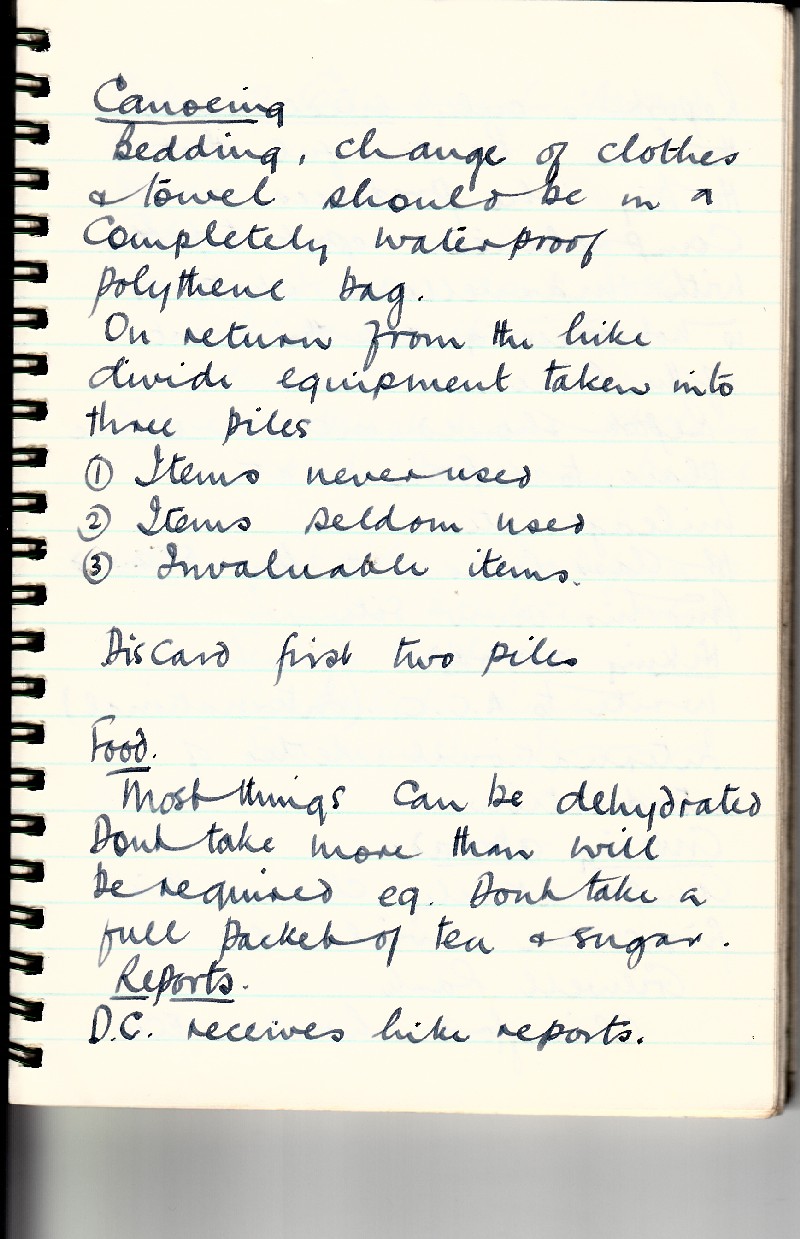 Canoeing
Bedding, change of clothes
& towel should be in a
Completely waterproof
polythene bag.
On return from the hike
divide equipment taken into
three piles
① Items never used
② Items seldom used
③ Invaluable items.
Discard first two piles
Food.
Most things can be dehydrated
Dont take more than will
be required eg. Dont take a
full packet of tea & sugar.
Reports.
D.C. receives hike reports.